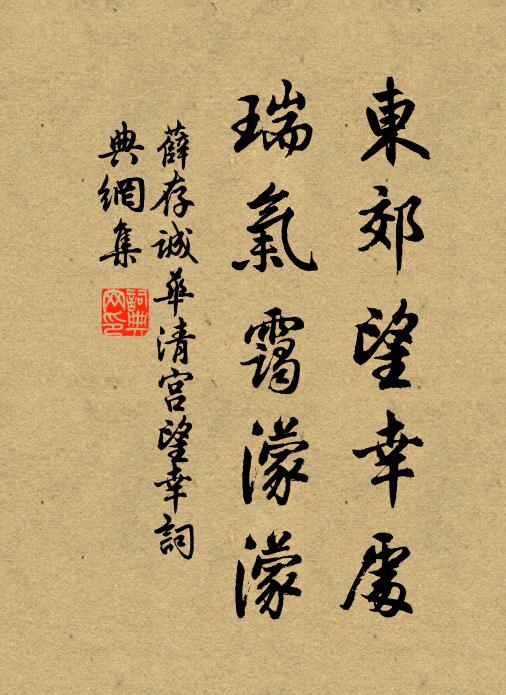 東郊望幸處
瑞氣靄濛濛
薛存誠華清宮望幸詞
典網集
詞典網印